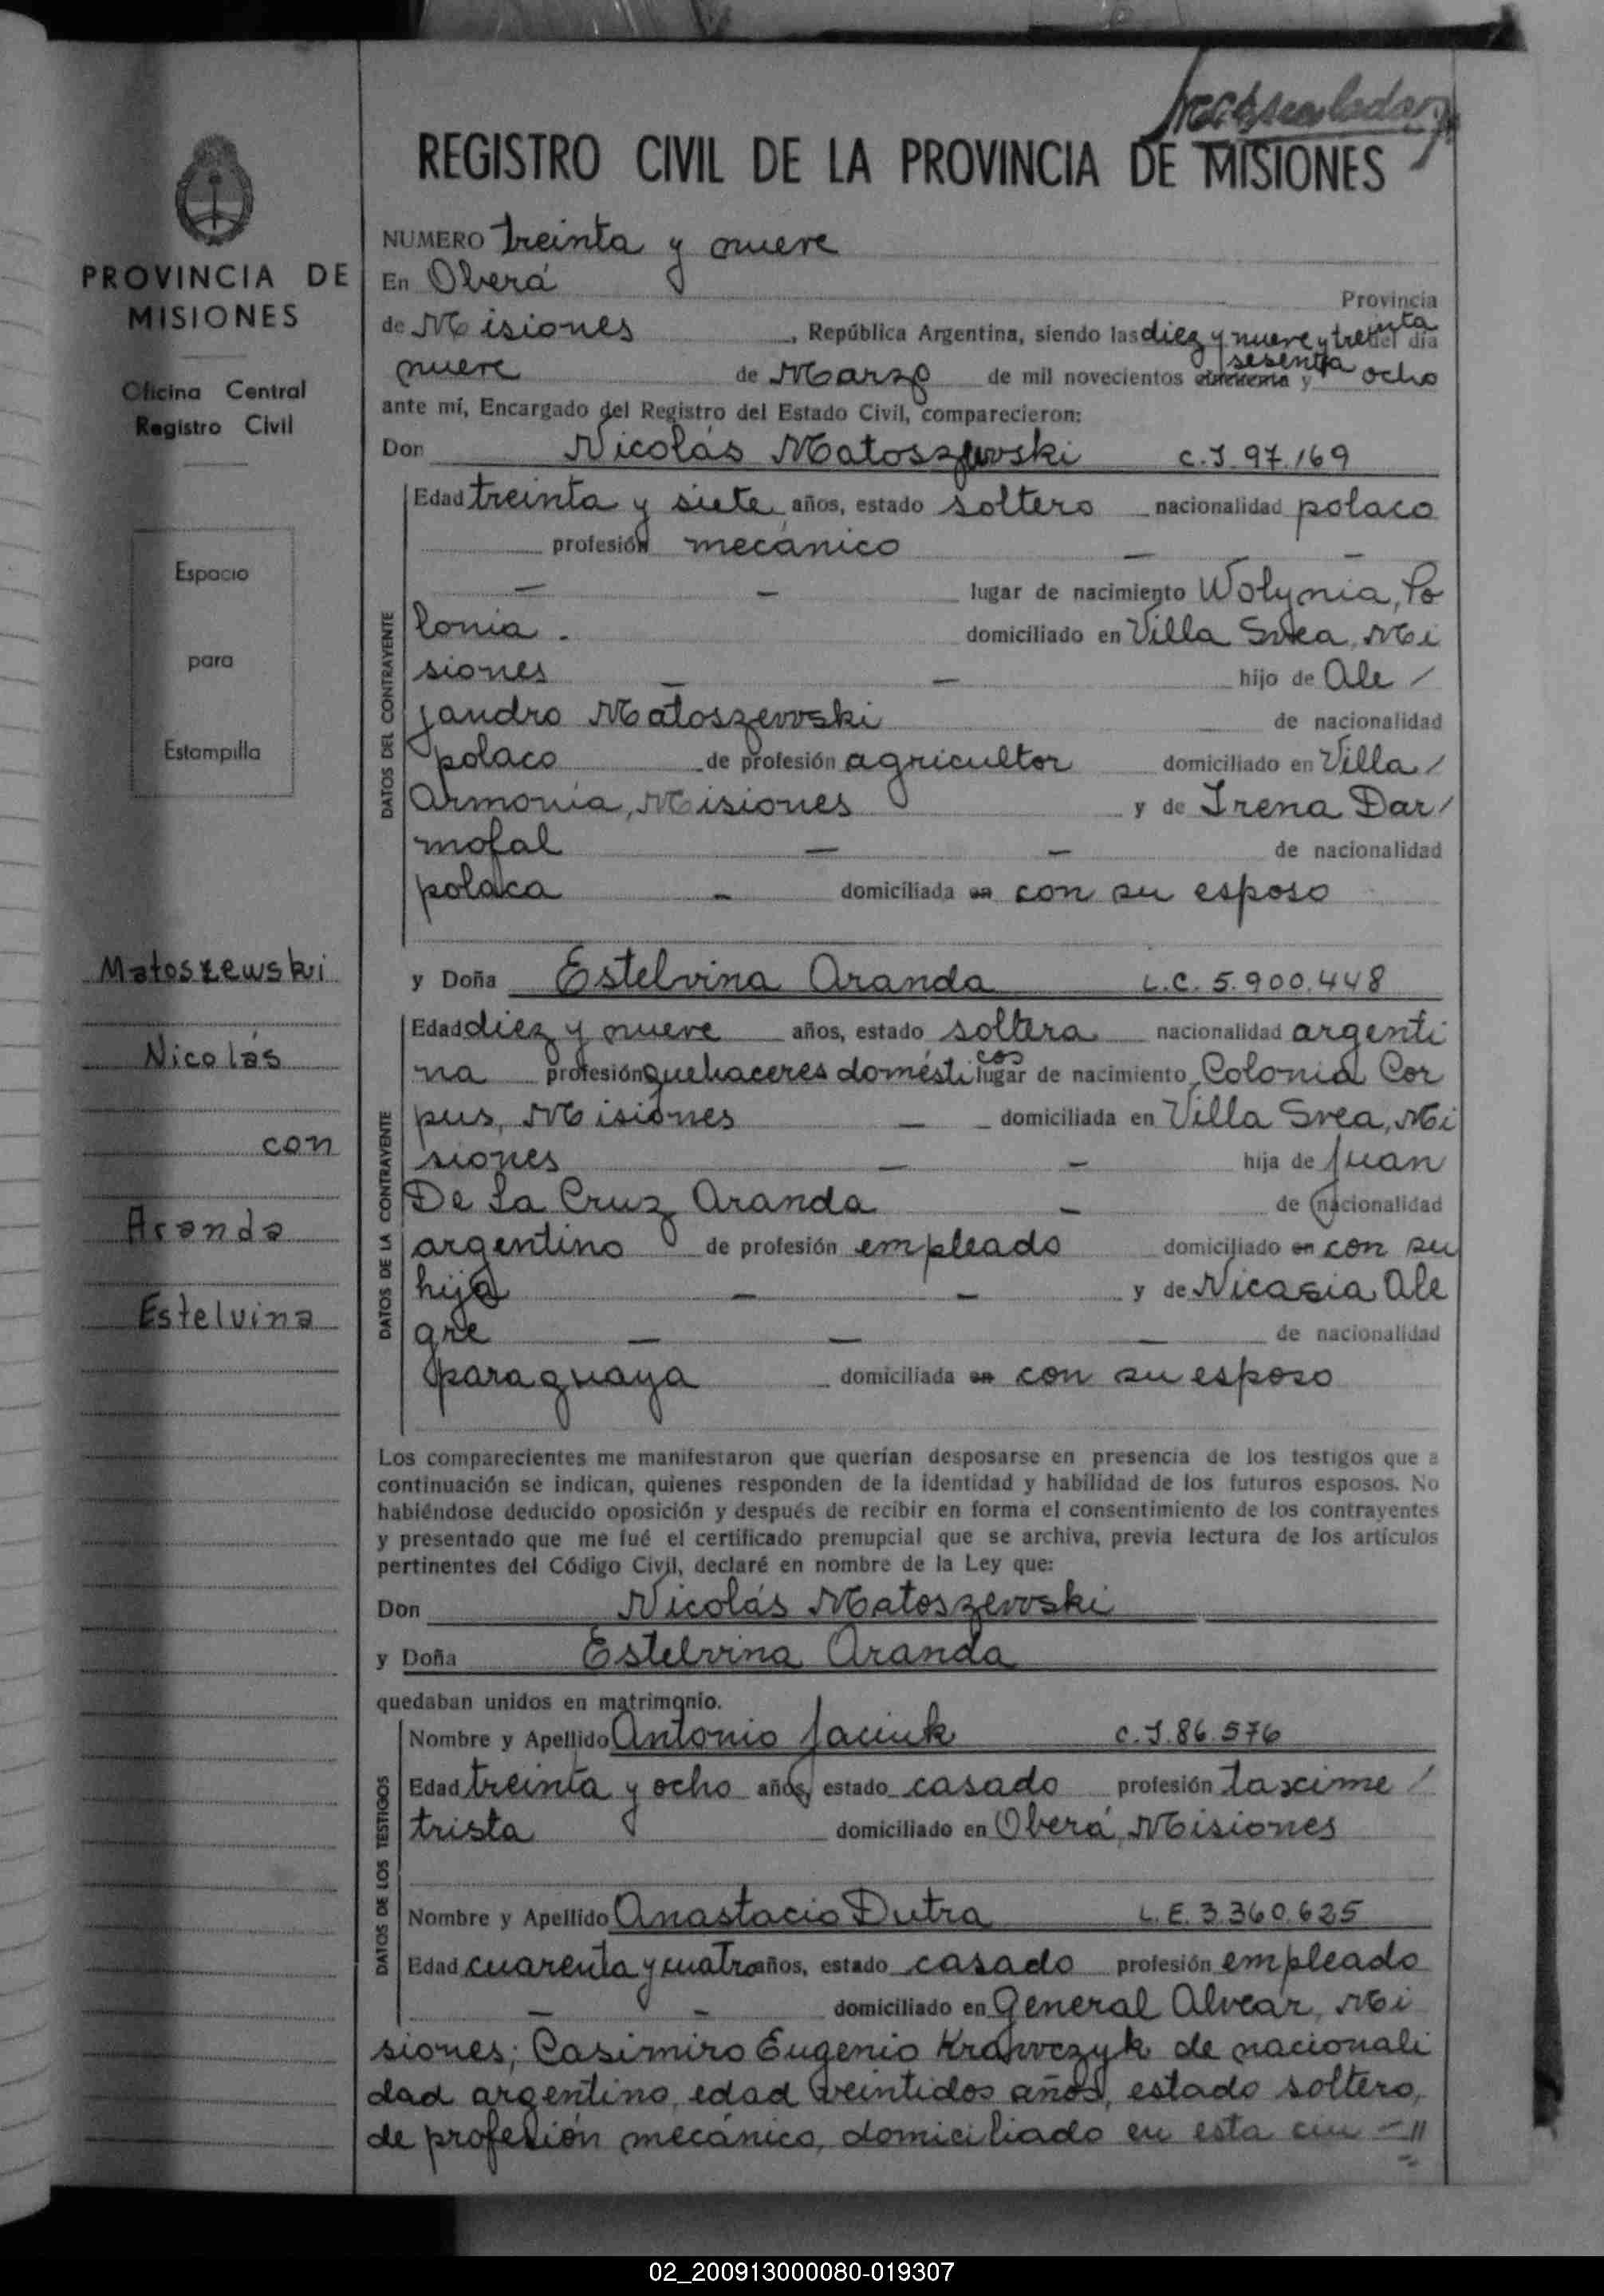 REGISTRO CIVIL DE LA PROVINCIA DE MISIONES
PROVINCIA DE
MISIONES
Oficina Central
Registro Civil
Espacio
para
Estampilla
Matoszewski
Nicolás
con
Aranda
Estelvina
NUMERO treinta y nueve
En Oberá Provincia
de Misiones, República Argentina, siendo las diez y nueve y treinta del día
nueve de Marzo de mil novecientos cincuenta y sesenta ocho
ante mí, Encargado del Registro del Estado Civil, comparecieron:
Don Nicolás Matoszewski C.I 97.169
DATOS DEL CONTRAYENTE
Edad treinta y siete años, estado soltero nacionalidad polaco
profesión mecánico — —
— — lugar de nacimiento Wolynia, Po
lonia. domiciliado en Villa Svea, Mi
siones — — hijo de Ale /
jandro Matoszewski de nacionalidad
polaco de profesión agricultor domiciliado en Villa /
Armonía, Misiones y de Irena Dar /
mofal — — de nacionalidad
polaca — domiciliada en con su esposo
y Doña Estelvina Aranda L.C. 5.900.448
DATOS DE LA CONTRAYENTE
Edad diez y nueve años, estado soltera nacionalidad argenti
na profesión quehaceres domésticos lugar de nacimiento Colonia Cor
pus, Misiones — domiciliada en Villa Svea, Mi
siones — — hija de Juan
De La Cruz Aranda — de nacionalidad
argentino de profesión empleado domiciliado en con su
hija — — y de Nicasia Ale
gre — — — de nacionalidad
paraguaya domiciliada en con su esposo
Los comparecientes me manifestaron que querían desposarse en presencia de los testigos que a
continuación se indican, quienes responden de la identidad y habilidad de los futuros esposos. No
habiéndose deducido oposición y después de recibir en forma el consentimiento de los contrayentes
y presentado que me fué el certificado prenupcial que se archiva, previa lectura de los artículos
pertinentes del Código Civil, declaré en nombre de la Ley que:
Don Nicolás Matoszewski
y Doña Estelvina Aranda
quedaban unidos en matrimonio.
DATOS DE LOS TESTIGOS
Nombre y Apellido Antonio Jaciuk C.I. 86.576
Edad treinta y ocho años, estado casado profesión taxime /
trista domiciliado en Oberá, Misiones
Nombre y Apellido Anastacio Dutra L.E. 3.360.625
Edad cuarenta y cuatro años, estado casado profesión empleado
— — domiciliado en General Alvear, Mi
siones; Casimiro Eugenio Krawczyk de nacionali
dad argentino, edad veintidos años, estado soltero,
de profesión mecánico, domiciliado en esta ciu - //
02_200913000080-019307